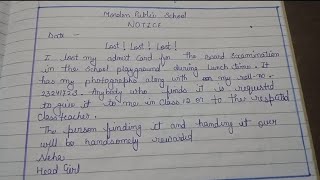 Mordern Public School
NOTICE
Date -
Lost! Lost! Lost!
I lost my admit Card for the Board Examination
in the School playground during lunch time. It
has my photographs along with my roll-no.
Anybody who finds it is requested
to give it to me in Class 12 or to the respected
Class teacher.
The person finding it and handing it over
will be handsomely rewarded
Neha
Head Girl